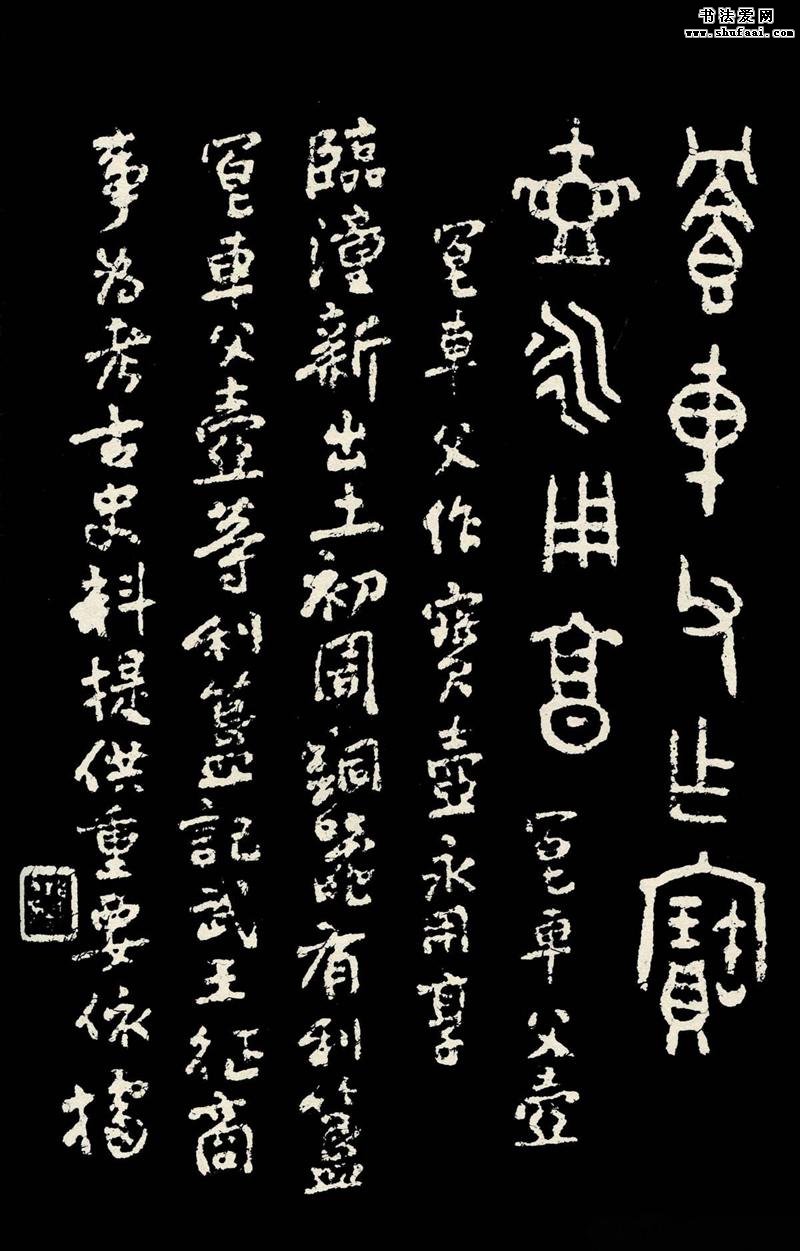 书法爱网
www.shufaai.com
車父乍寶
壺永用享
車父壺
車父作寶壺永用享
臨潼新出土初周銅有利簋
車父壺等利簋記武王征商
事為考古史料提供重要依據